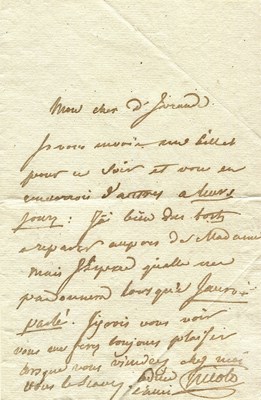 Mon cher d'
Je vous envoie un billet
pour ce soir et vous en
enverrois d'autres a leurs
jours: J'ai bien des torts
a reparer aupres de Madame
mais J'espere qu'elle me
pardonnera lorsque J'aurai
parlé.
vous me ferez toujours plaisir
lorsque vous viendrez chez moi
Nicolo